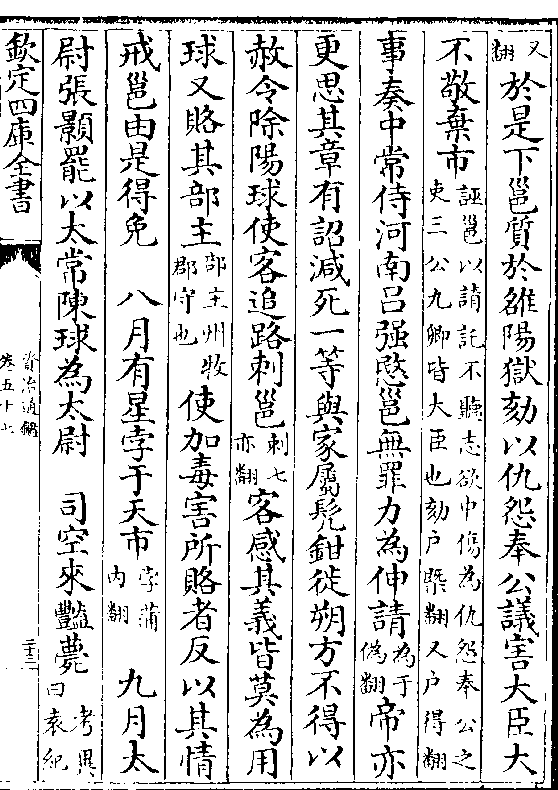 又翻於是下邕質於雒陽獄劾以仇怨奉公議害大臣大
不敬棄市誣邕以請託不聽志欲中傷為仇怨奉公之吏三公九卿皆大臣也劾户槩翻又户得翻
事奏中常侍河南呂强愍邕無罪力為伸請為于偽翻帝亦
更思其章有詔減死一等與家屬髠鉗徙朔方不得以
赦令除陽球使客追路刺邕刺七亦翻客感其義皆莫為用
球又賂其部主部主州牧郡守也使加毒害所賂者反以其情
戒邕由是得免 八月有星孛于天市孛蒲内翻 九月太
尉張顥罷以太常陳球為太尉 司空來豔薨考異曰袁紀
欽定四庫全書
資治通鑑
卷五十七
二十三